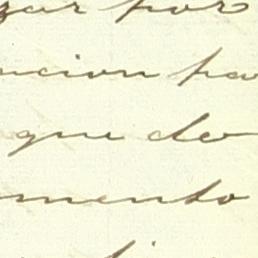 zar por
ncion pa
que de
mento